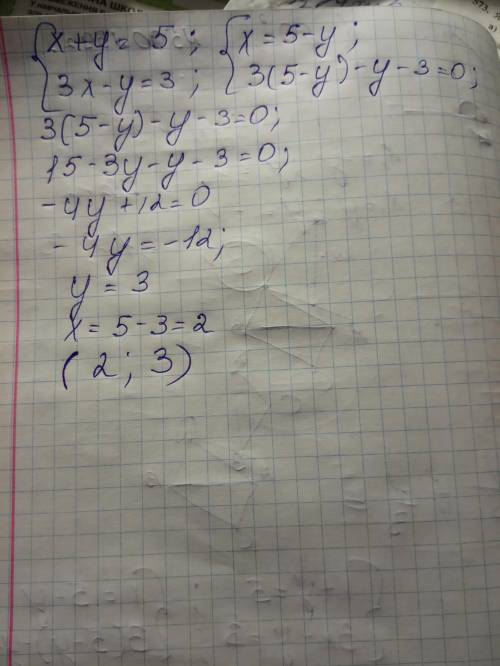 x+y= 5; x=5-y;
3x-y=3; 3(5-y)-y-3=0;
3(5-y)-y-3=0;
15-3y-y-3=0;
-4y+12=0
-4y=-12;
y=3
x=5-3=2
(2; 3)